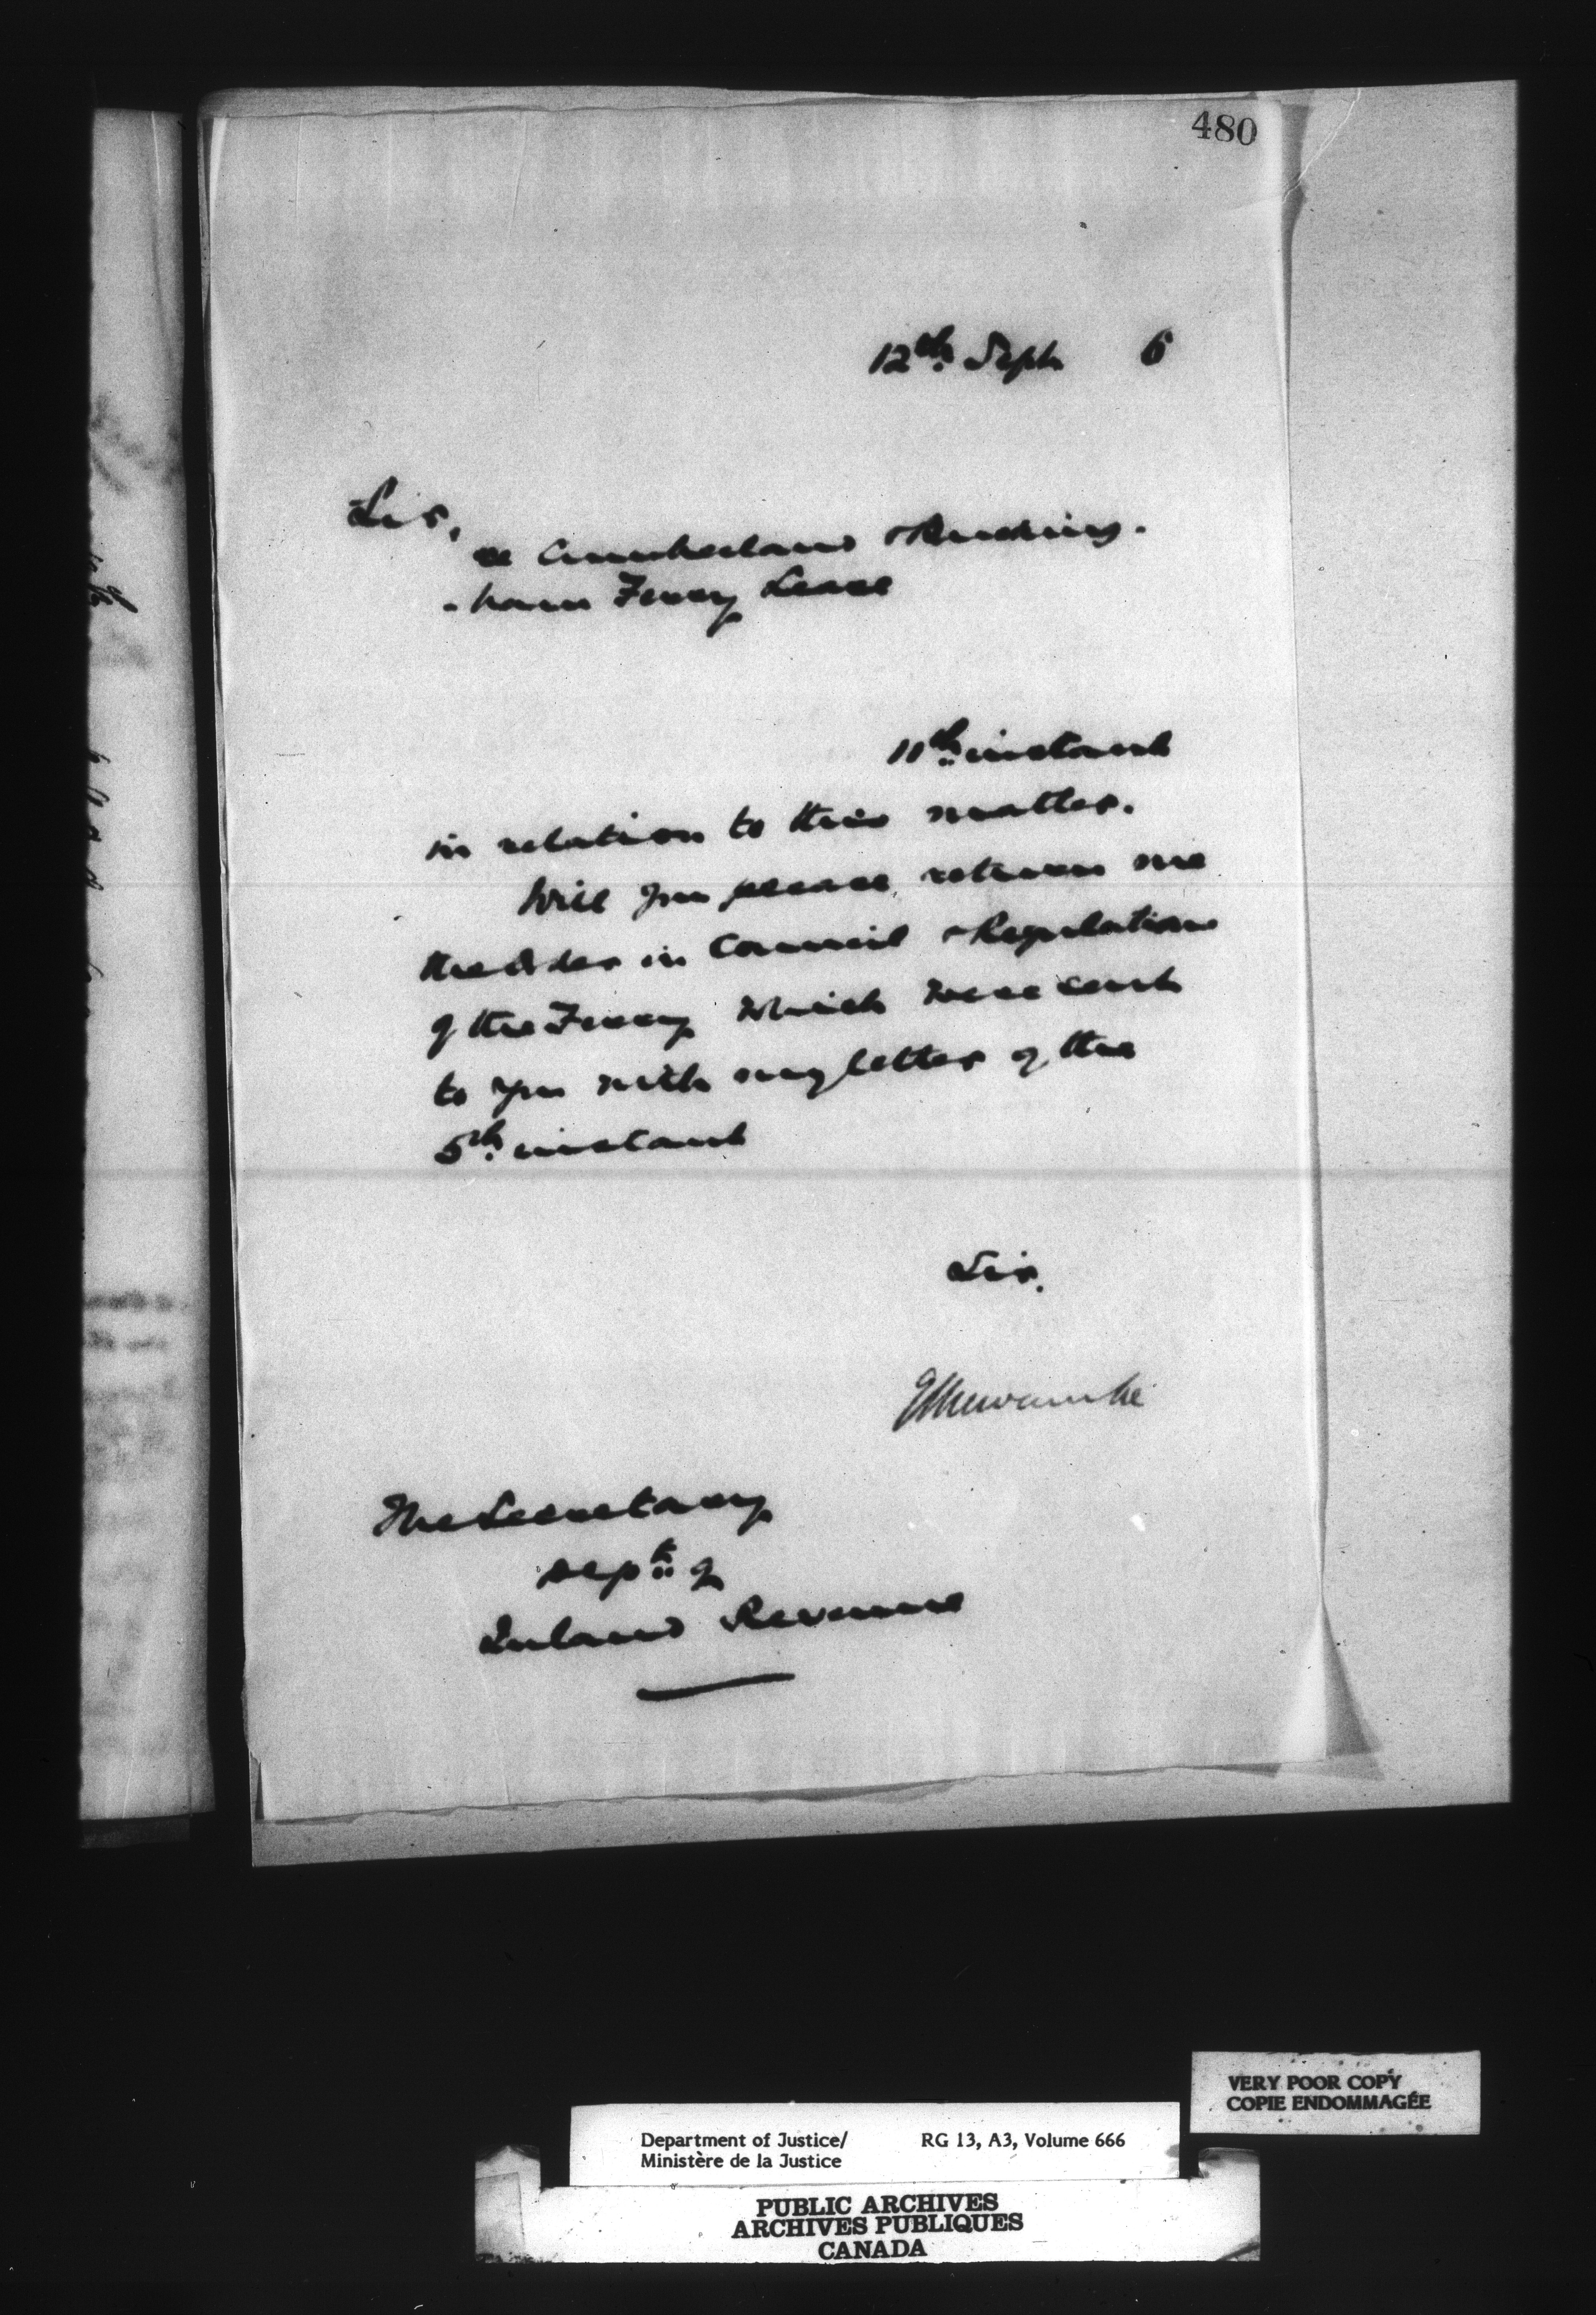 480
12th. Sept 6
Sir,
re Cumberland & Bucking-
-ham Ferry Lease
11th. instant
in relation to this matter.
Will you please return me
the Order in Council & Regulations
of the Ferry which were sent
to you with my letter of the
5th. instant
Sir,
ELNewcombe
The Secretary
Dept. of
Inland Revenue
VERY POOR COPY
COPIE ENDOMMAGÉE
Department of Justice/ RG 13, A3, Volume 666
Ministère de la Justice
PUBLIC ARCHIVES
ARCHIVES PUBLIQUES
CANADA